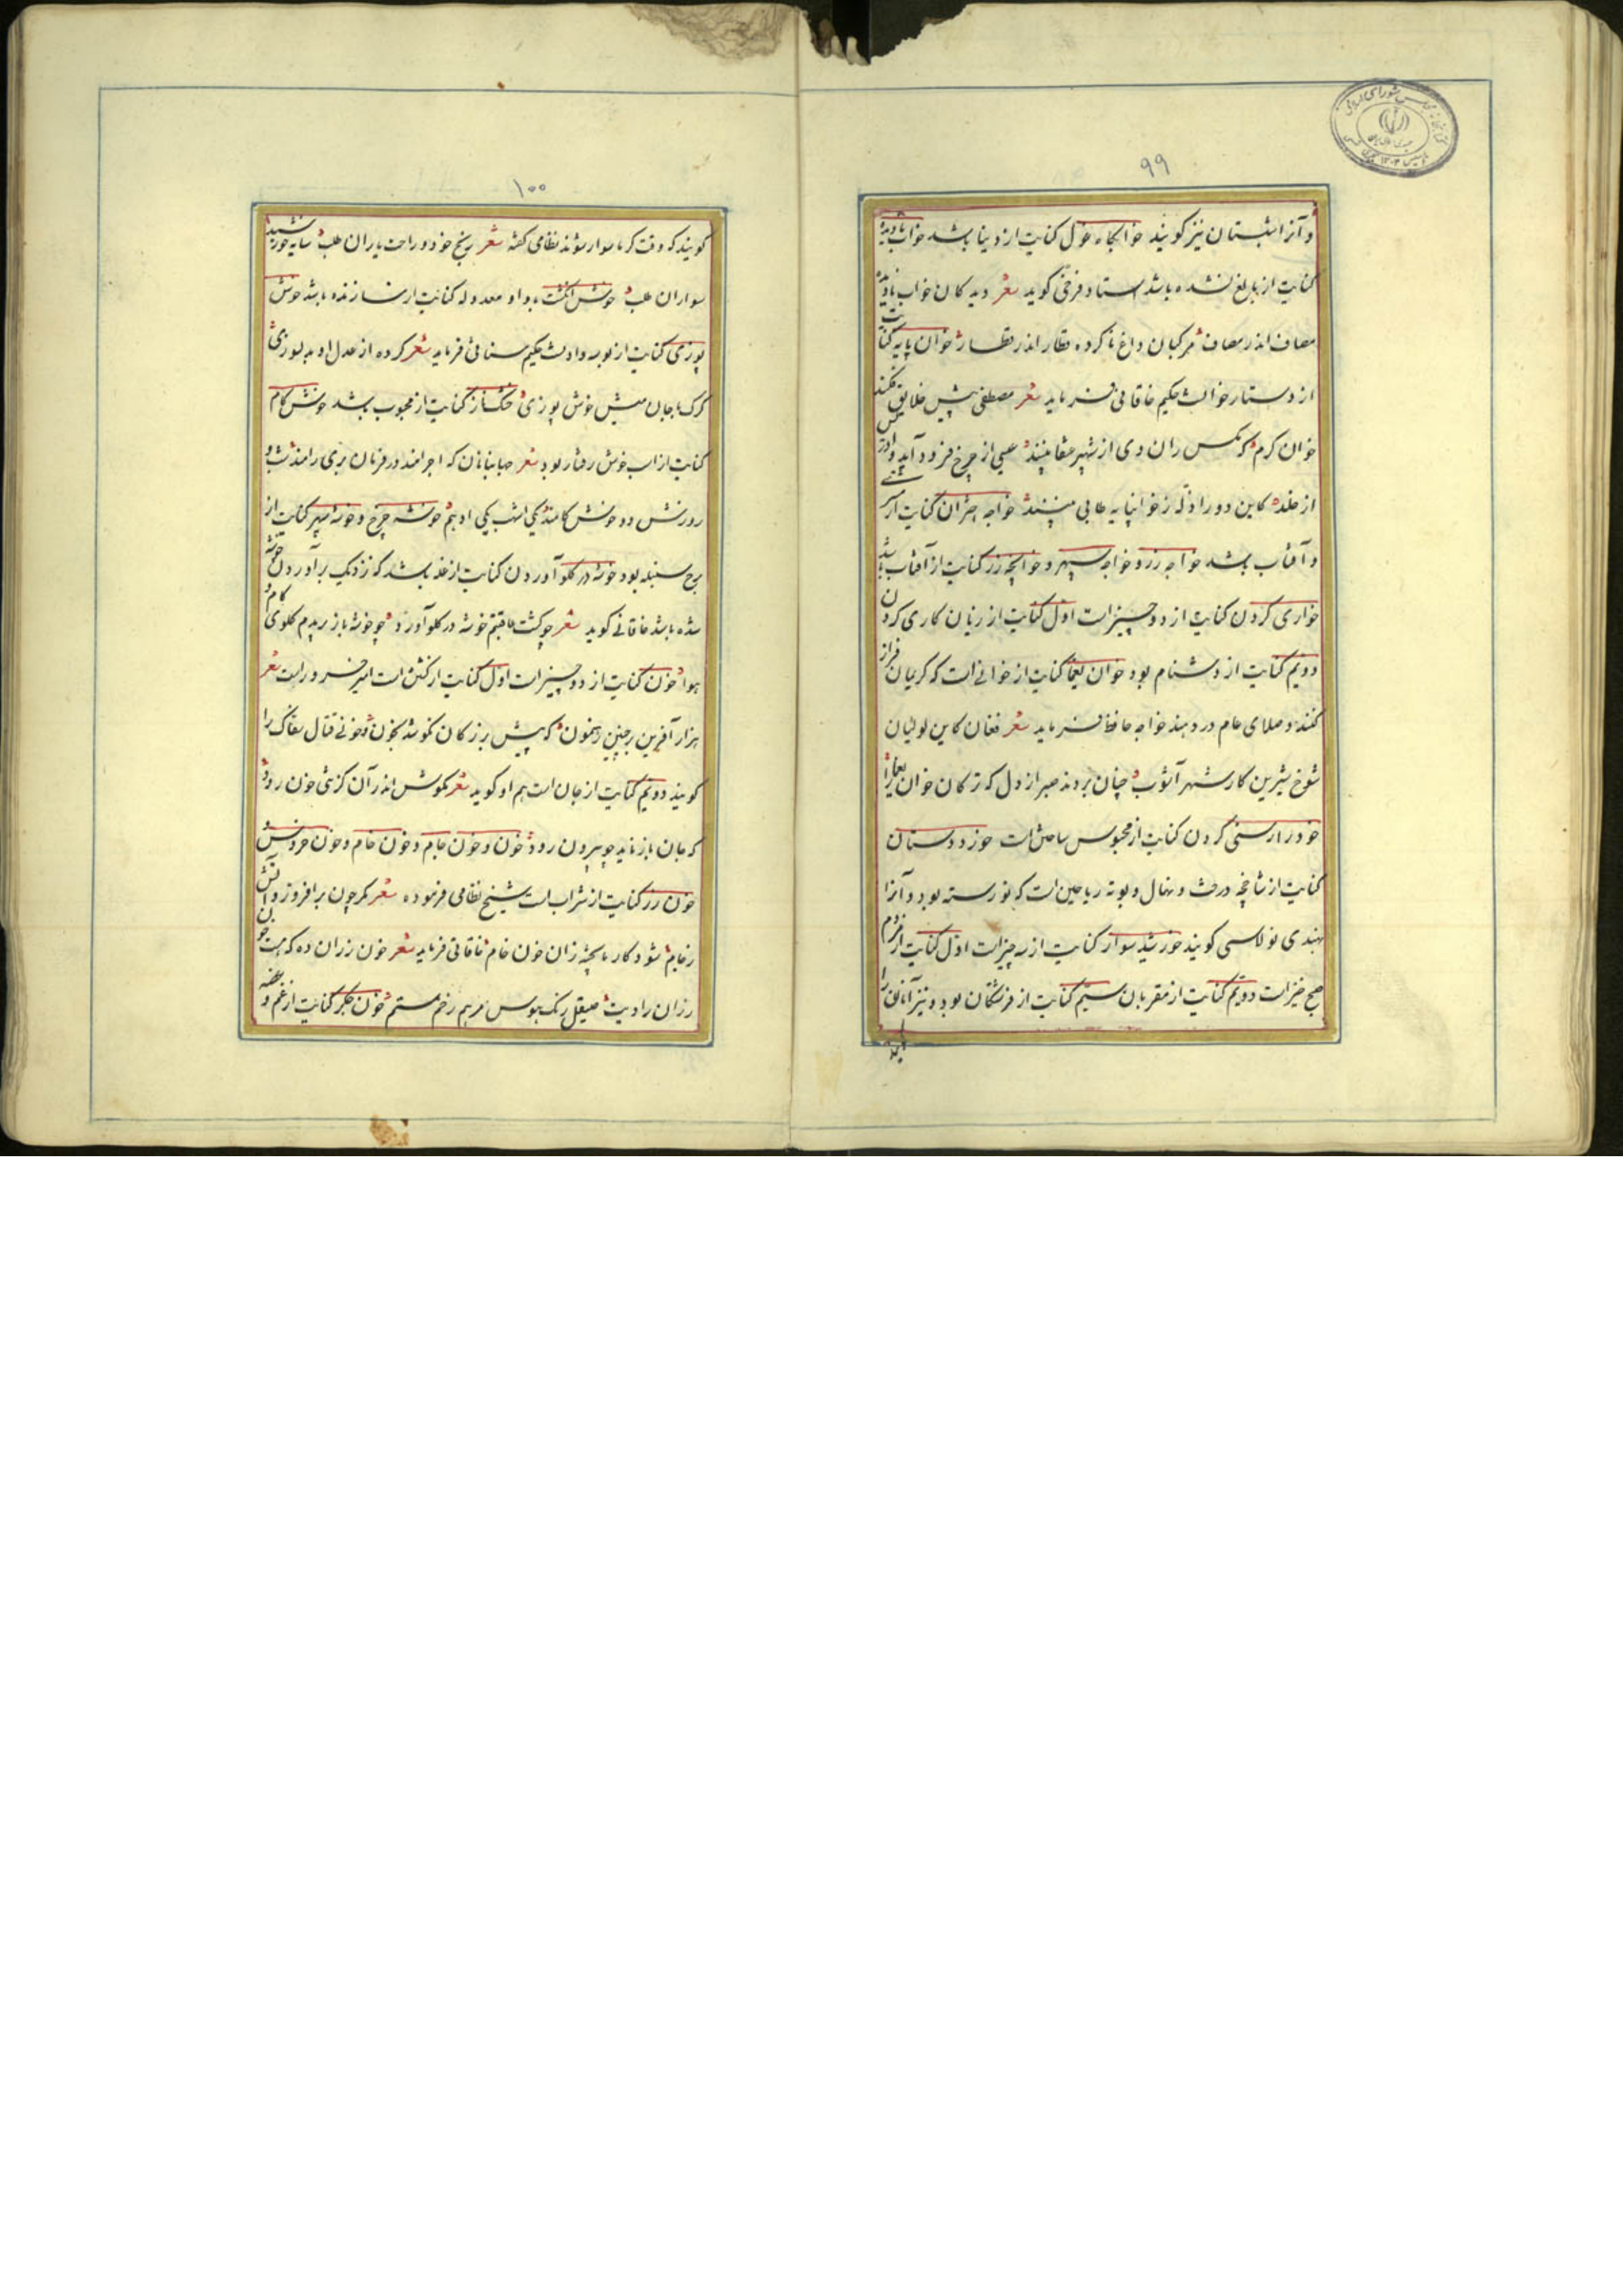 ۹۹
و آنرا شبستان نیز کویند خوابکاه غول کنایت از دنیا باشد خواب نادیده
کنایت از بالغ نشده باشد استاد فرخی کوید شعر دیدکان خواب نادیده
مصاف اندر مصاف مرکبان داغ ناکرده قطار اندر قطار خوان پایه کنایت
از دستارخوانست حکیم خاقانی فرماید شعر مصطفی پیش خلایق فکند
خوان کرم که مکس ران وی از شهپر عنقا بینند عیسی از چرخ فرود آید و ادریس
از خلد کاین دو را زله ز خوانپایه طابی بینند خواجه اختران کنایت از
و آفتاب باشد خواجه زر و خواجه سپهر و خوانچه زر کنایت از آفتاب باشد
خواری کردن کنایت از دو چیز است اول کنایت از زیان کاری کردن
دویم کنایت از دشنام بود خوان یغما کنایت از خوانی است که کریمان فراز
کنند و صلای عام در دهند خواجه حافظ فرماید شعر فغان کاین لولیان
شوخ شیرین کار شهر آشوب چنان بردند صبر از دل که ترکان خوان یغما را
کردن کنایت از محبوس ساختن است
کنایت از شاخچه درخت و نهال و بوته ریاحین است که نو رسته بود و آنرا
بهندی کویند خورشید سوار کنایت از سه چیز است اول کنایت از مردم
صبح خیز است دویم کنایت از مقربان سیم کنایت از فرشتکان بود و نیز آنان را
۱۰۰
کویند که وقت کرما سوار شوند نظامی کفته شعر رنج خود و راحت یاران طلب سایه خورشید
سواران طلب خوش انکشت با واو معدوله کنایت از سازنده باشد خوش
پوزی کنایت از بوسه دادنست حکیم سنائی فرماید شعر کرده از عدل او بدلسوزی
کرک با جان میش خوش پوزی کنایت از محبوب باشد خوش کام
کنایت از اسب خوش رفتار بود شعر جهانبانان که اجرامند در فرمان بری رامند شب و
روزش دو خوش کامند یکی اشهب یکی ادهم خوشه چرخ و خوشه سپهر کنایت از
برج سنبله بود خوشه در کلو آوردن کنایت از غله باشد که نزدیک برآوردن خوشه
شده باشد خاقانی کوید شعر چو کشت عافیتم خوشه در کلو آورد چو خوشه باز بریدم کلوی کام و
هوا خون کنایت از دو چیز است اول کنایت از کشتن است امیر خسرو راست شعر
هزار آفرین بر چنین رهنمون که پیش بزرکان نکوشد بخون و خونی قتال سفاک را
کویند دویم کنایت از جان است هم او کوید شعر مکوش اندر آن کز تنی خون رود
که جان باز ناید چو بیرون رود خون و خون جام و خون خام و خون خروس و
خون رز کنایت از شراب است شیخ نظامی فرموده شعر مکر چون برافروزد آتش
ز جام شود کار ما پخته زان خون خام خاقانی فرماید شعر خون رزان ده که هست خون
رزان را دیت صیقل زنک هوس مرهم زخم ستم خون جکر کنایت از غم و غصه